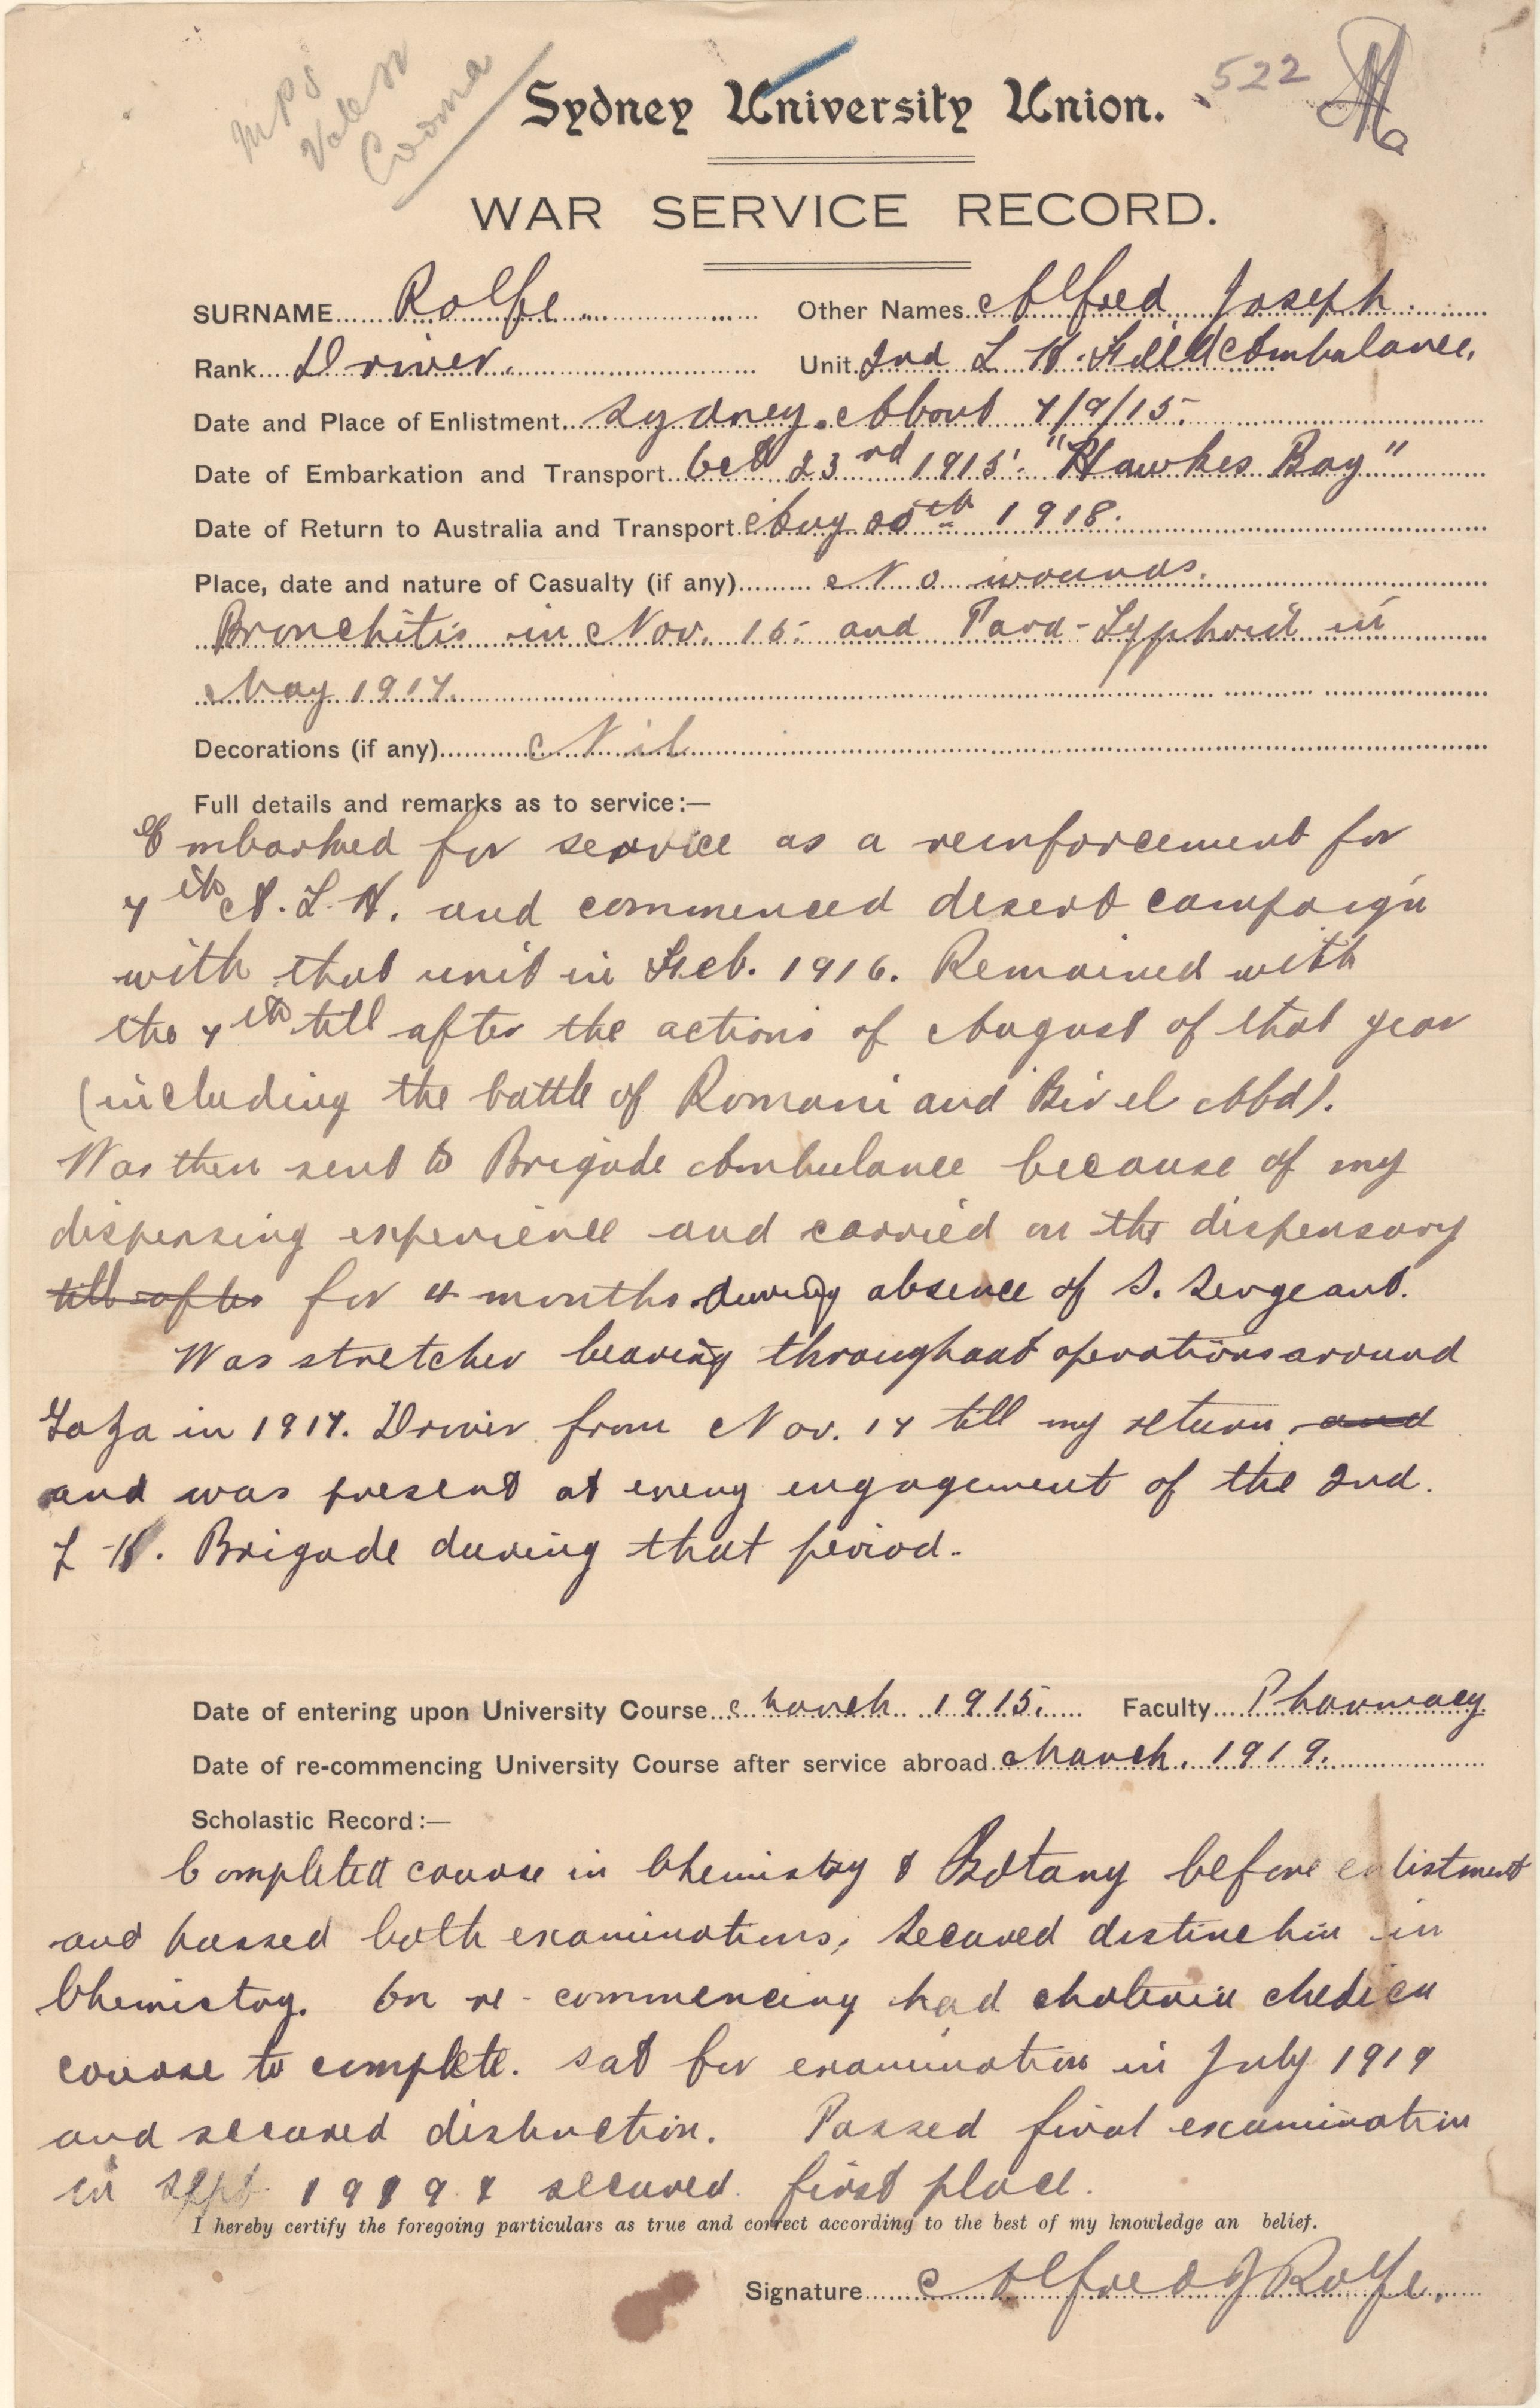 MPS
Cooma
522
Sydney University Union.
WAR SERVICE RECORD.
SURNAME Rolfe Other Names Alfred Joseph
Rank Driver. Unit 2nd L H. Field Ambulance.
Date and Place of Enlistment Sydney. About 7/9/15.
Date of Embarkation and Transport Oct 23rd 1915. "Hawkes Bay"
Date of Return to Australia and Transport Aug 1918.
Place, date and nature of Casualty (if any) No wounds.
Bronchitis in Nov. 15. and Para-Typhoid in
May 1917.
Decorations (if any) Nil.
Full details and remarks as to service:—
Embarked for service as a reinforcement for
7th A. L. H. and commenced desert campaign
with that unit in Feb. 1916. Remained with
the 7th till after the actions of August of that year
(including the battle of Romani and Bir el Abd).
Was then sent to Brigade Ambulance because of my
dispensing experience and carried on the dispensary
till after for 4 months during absence of S. Sergeant.
Was stretcher bearing throughout operations around
Gaza in 1917. Driver from Nov. 17 till my return and
and was present at every engagement of the 2nd.
L H. Brigade during that period.
Date of entering upon University Course March 1915. Faculty Pharmacy.
Date of re-commencing University Course after service abroad March. 1919.
Scholastic Record:—
Completed course in Chemistry & Botany before enlistment
and passed both examinations; secured distinction in
Chemistry. On re-commencing had Materia Medica
course to complete. Sat for examination in July 1919
and secured distinction. Passed final examination
in Sept. 1919 & secured first place.
I hereby certify the foregoing particulars as true and correct according to the best of my knowledge an belief.
Signature Alfred J Rolfe.